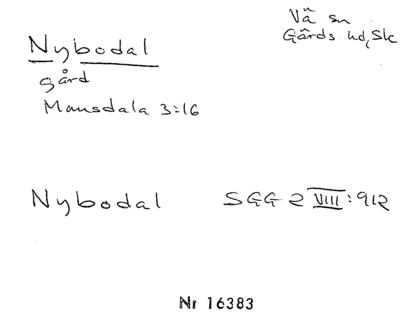 Vå sn
Gårds hd, Sk
Nybodal
gård
Monsdala 3:16
Nybodal SGG 2 VIII:912
Nr 16383